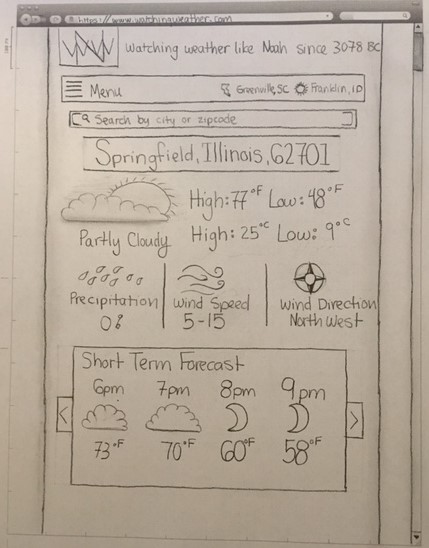 https://www.watchingweather.com
WW
Watching weather like Noah since 3078 BC
Menu Greenville, SC Franklin, ID
Search by city or zipcode
Springfield, Illinois, 62701
High: 77°F Low: 48°F
Partly Cloudy High: 25°C Low: 9°C
Precipitation Wind Speed Wind Direction
0% 5-15 North West
Short Term Forecast
6pm 7pm 8pm 9pm
< >
73°F 70°F 60°F 58°F